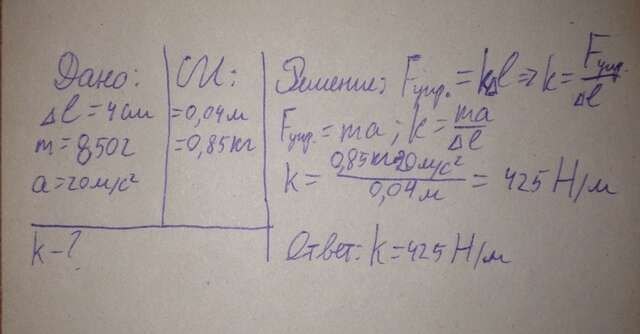 Дано:
Δl = 4 см
m = 850 г
a = 20 м/с²
k - ?
СИ:
= 0,04 м
= 0,85 кг
Решение: Fупр. = kΔl => k = Fупр./Δl
Fупр. = ma; k = ma/Δl
k = 0,85 кг · 20 м/с² / 0,04 м = 425 Н/м
Ответ: k = 425 Н/м